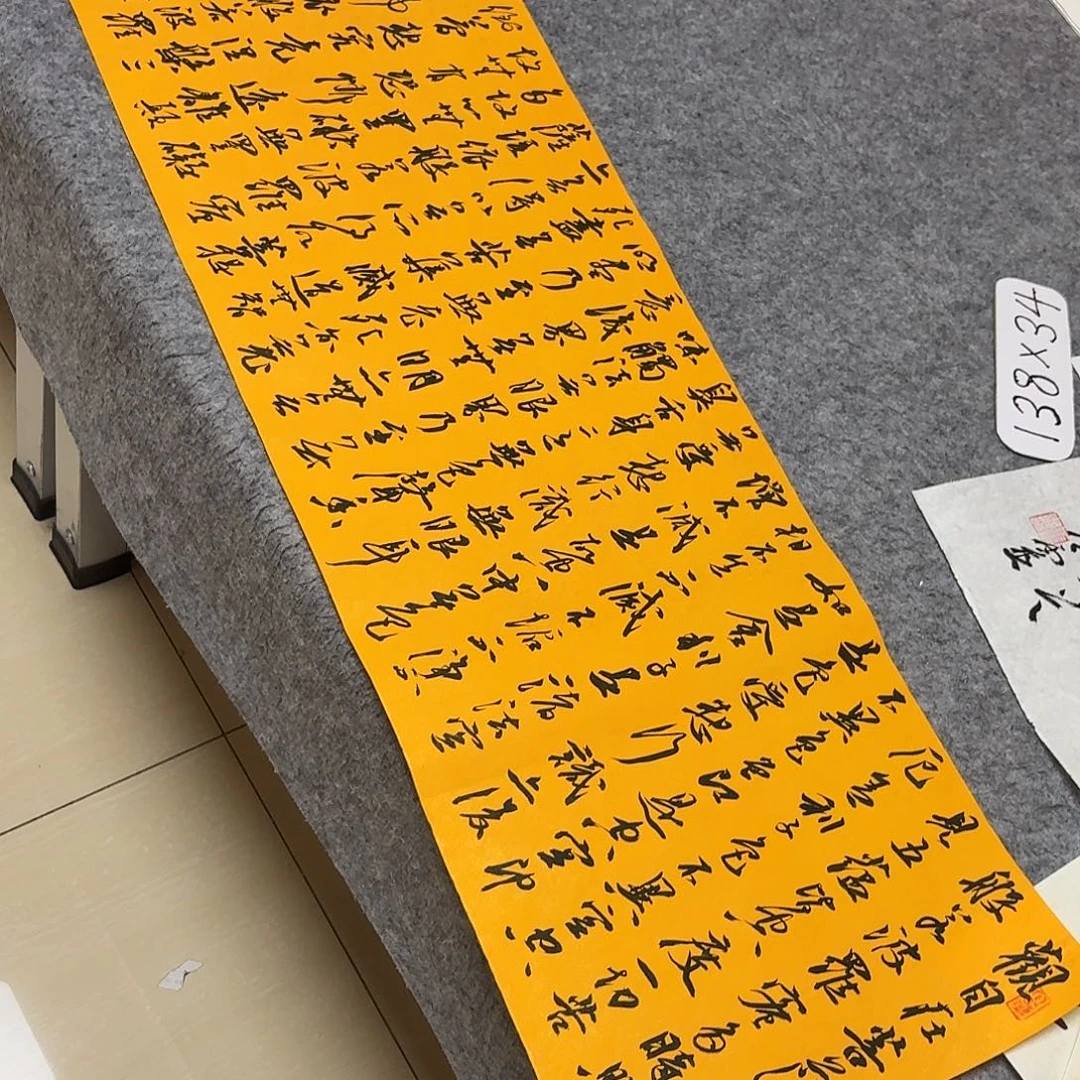 觀自在菩
般若波羅蜜多時照
見五蘊皆空度一切苦
厄舍利子色不異空色
不異色色即是空空即
是色受想行識亦復
如是舍利子是諸法空
相不生不滅不垢不淨
增不減是故空中無色
無受想行識無眼耳
鼻舌身意無色聲香
味觸法無眼界乃至無
意識界無無明亦無無
明盡乃至無老死亦無老
死盡無苦集滅道無智
亦無得以無所得故菩提
薩埵依般若波羅蜜
多故心無罣礙無罣礙
故無有恐怖遠離顛
倒夢想究竟涅槃三
般若波羅
138X34